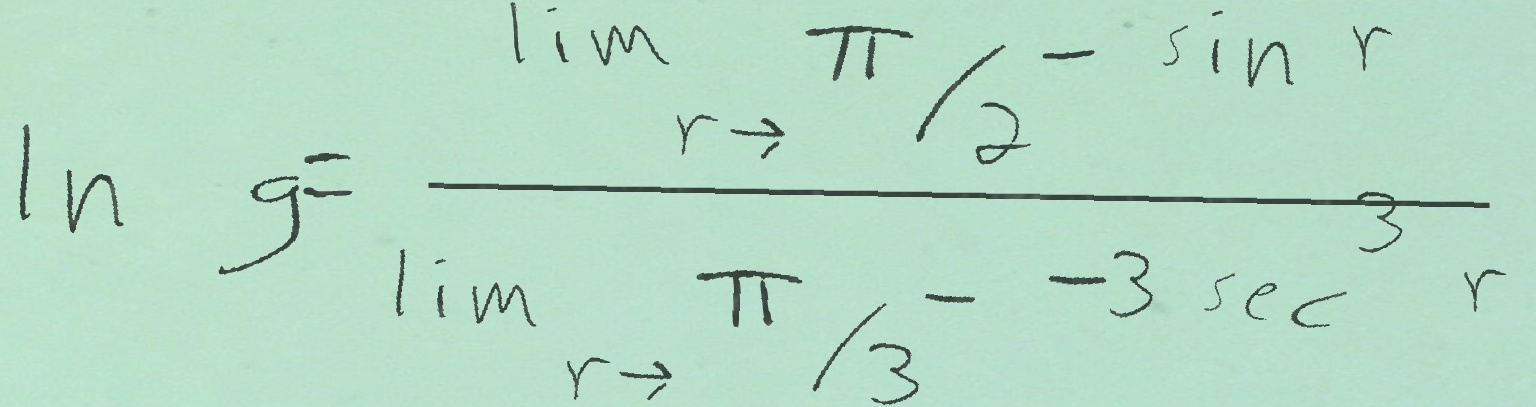 ln g = \frac{\lim_{r \to \pi/2^-} \sin r}{\lim_{r \to \pi/3^-} -3 \sec^3 r}